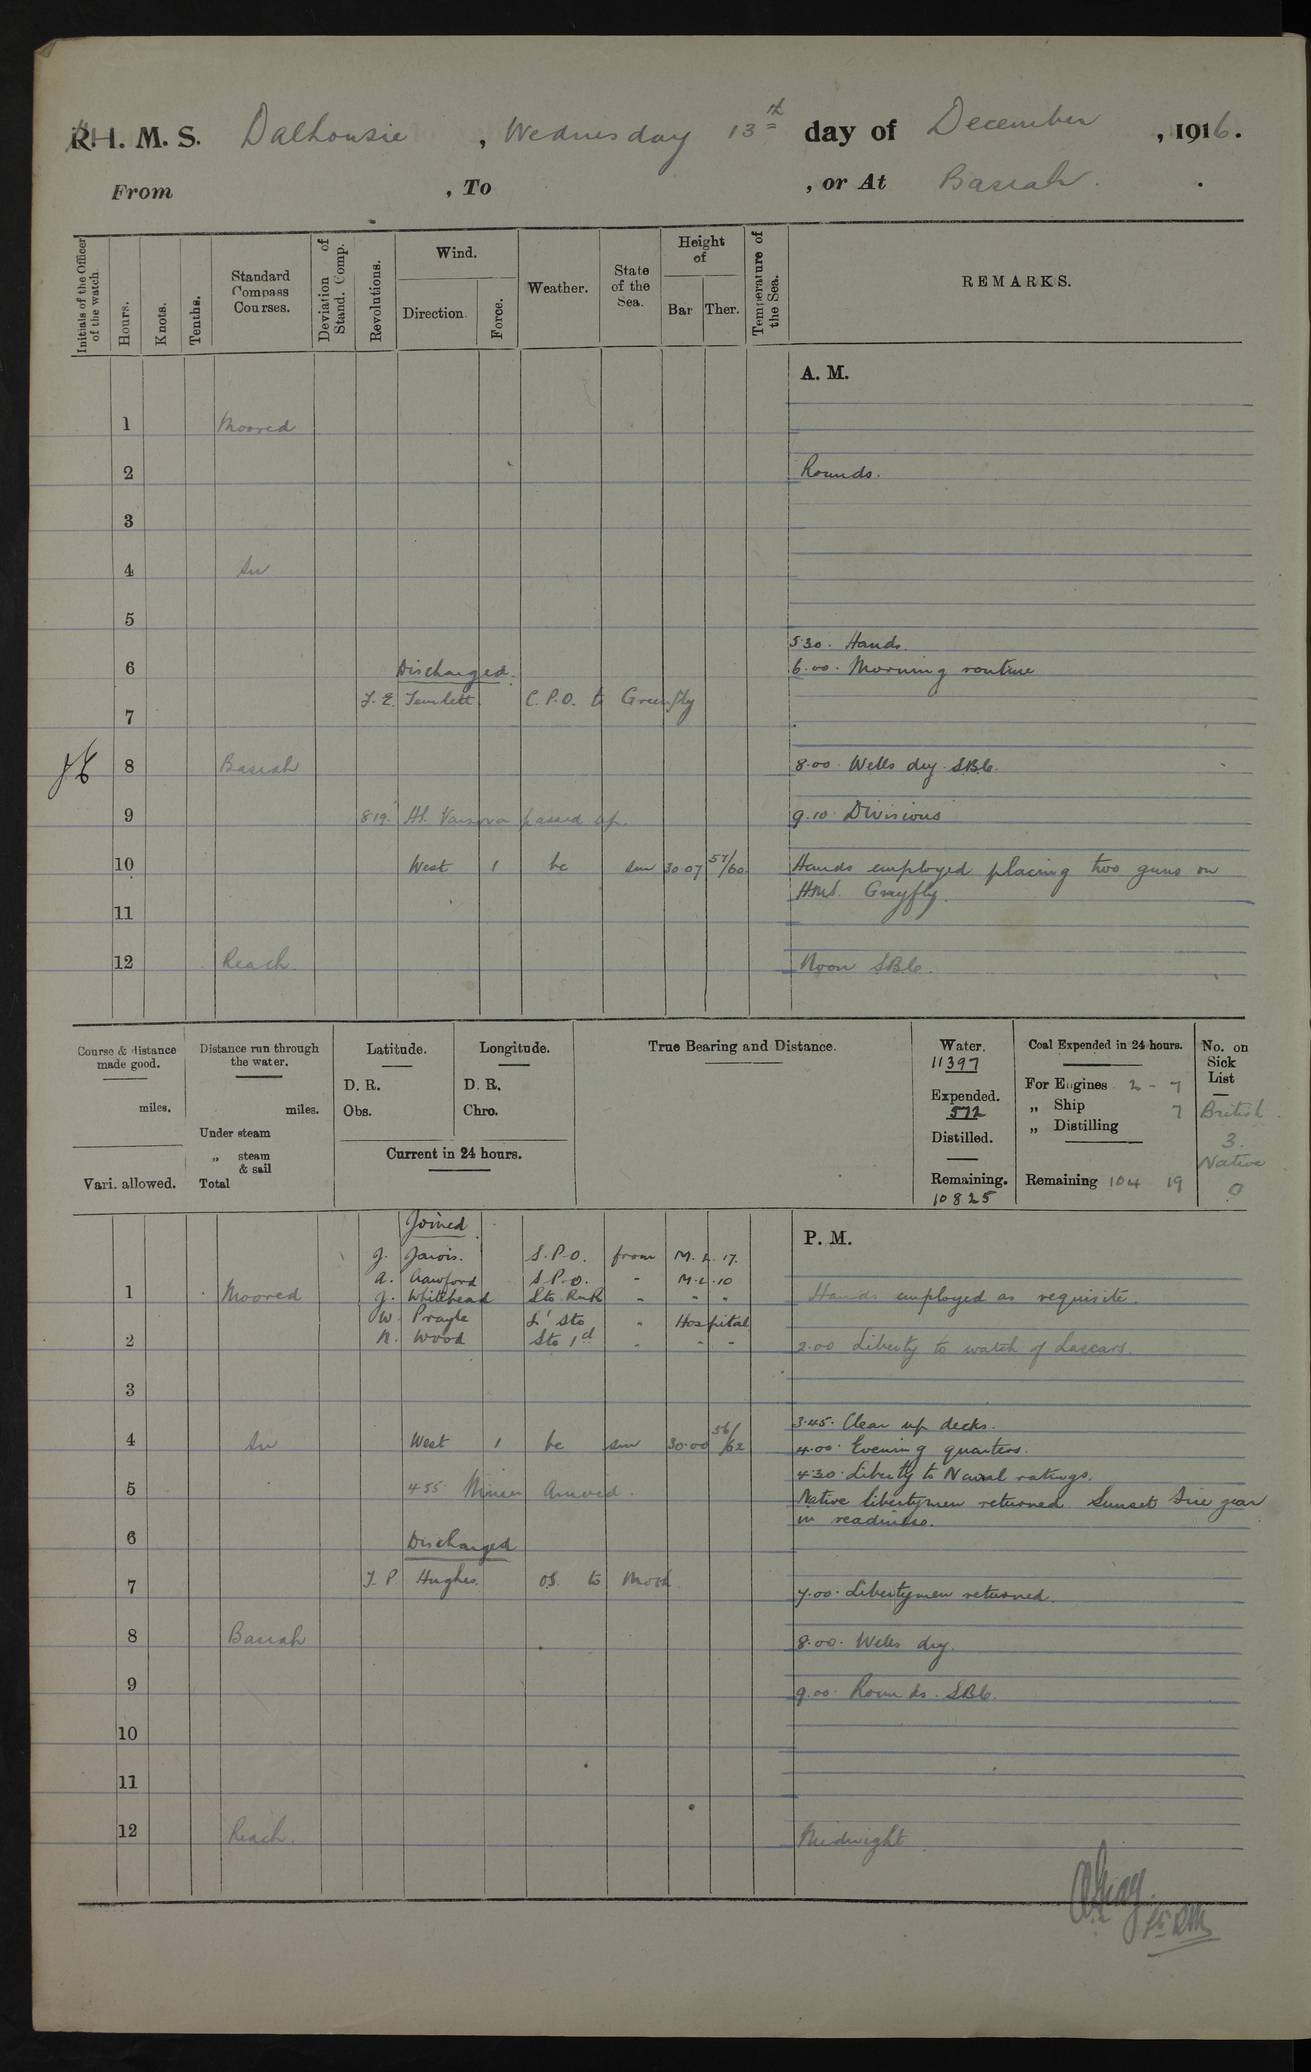 H. M. S. Dalhousie , Wednesday 13th day of December , 1916.
From , To , or At Basrah .
Initials of the Officer of the watch
Hours.
Knots.
Tenths.
Standard Compass Courses.
Deviation of Stand. Comp.
Revolutions.
Wind.
Direction.
Force.
Weather.
State of the Sea.
Height of
Bar
Ther.
Temperature of the Sea.
REMARKS.
A. M.
1 Moored
2 Rounds.
3
4
5
5.30. Hands.
6 Discharged. 6.00. Morning routine
C.P.O. to Greenfly
7
8 Basrah 8.00. Wells dry. SBC.
9 819. passed up. 9.10 Divisions
10 West 1 bc sm 30.07 57/60 Hands employed placing two guns on
HMS. Grayfly.
11
12 Reach Noon SBC.
Course & distance made good.
miles.
Vari. allowed.
Distance run through the water.
miles.
Under steam
„ steam & sail
Total
Latitude.
D. R.
Obs.
Longitude.
D. R.
Chro.
Current in 24 hours.
True Bearing and Distance.
Water.
11397
Expended.
572
Distilled.
Remaining.
10825
Coal Expended in 24 hours.
For Engines 2 - 7
„ Ship 7
„ Distilling
Remaining 104 19
No. on Sick List
British.
3.
Native
0
Joined P. M.
J. Jarvis. S.P.O. from M.L. 17.
A. Crawford S.P.O. - M.L. 10
1 Moored J. Whitehead Sto. " " " Hands employed as requisite.
W. L' Sto " Hospital
2 N. Wood Sto 1d " " " 2.00 Liberty to watch of Lascars.
3
3.45. Clear up decks.
4 West 1 bc sm 30.00 56/62 4.00. Evening quarters.
4.30. Liberty to Naval ratings.
5 4.55 Miner Arrived. Native libertymen returned. Sunset Fire gear
in readiness.
6 Discharged
Hughes. OS. to Moth
7 7.00. Libertymen returned.
8 Basrah 8.00. Wells dry.
9 9.00. Rounds. SBC.
10
11
12 Reach. Midnight